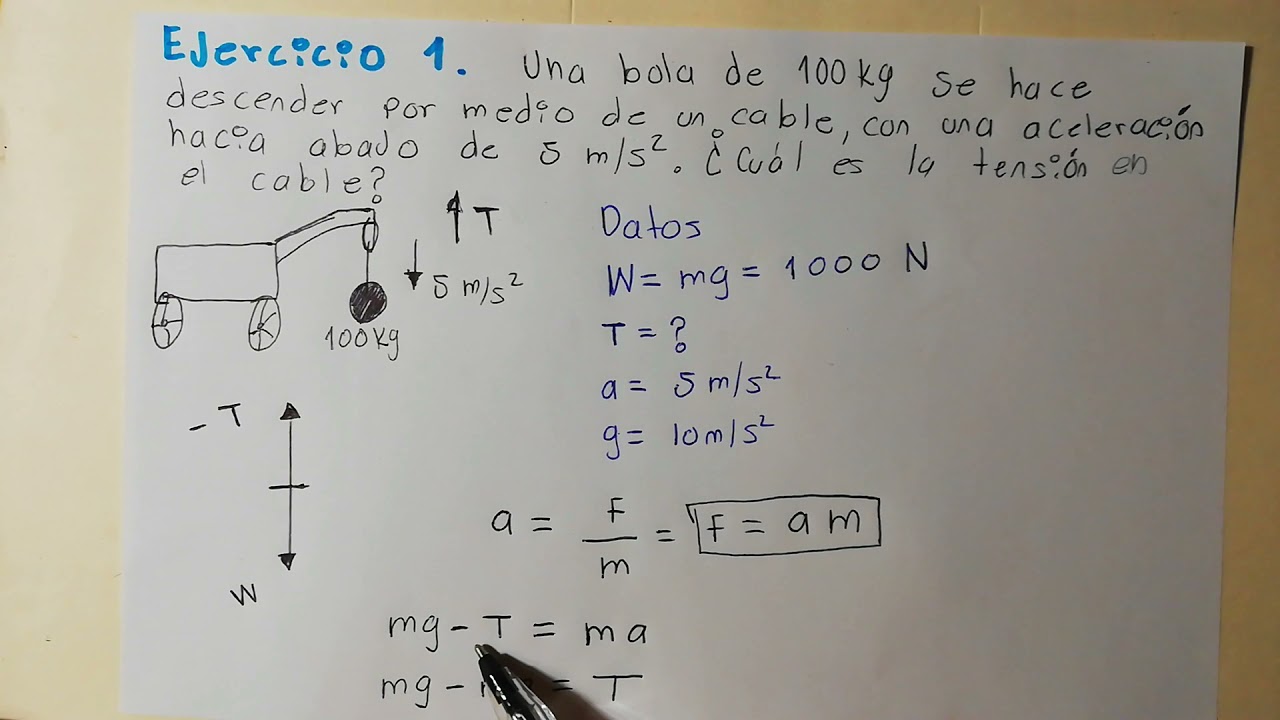 Ejercicio 1. Una bola de 100kg se hace
descender por medio de un cable, con una aceleración
hacia abajo de 5 m/s². ¿Cuál es la tensión en
el cable?
T
5 m/s²
100kg
Datos
W = mg = 1000 N
T = ?
a = 5 m/s²
g = 10 m/s²
- T
W
a = F/m = F = a m
mg - T = ma
mg - = T